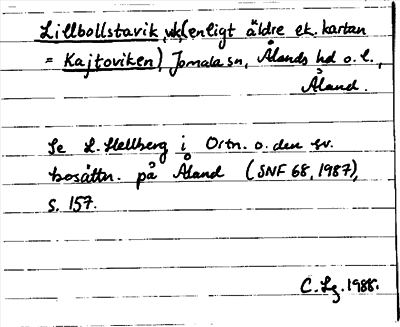 Lillbollstavik, vik (enligt äldre ek. kartan
= Kajtoviken) Jomala sn, Ålands hd o. l.,
Åland.
Se L. Hellberg i Ortn. o. den sv.
bosättn. på Åland (SNF 68, 1987),
s. 157.
C. Lg. 1988.